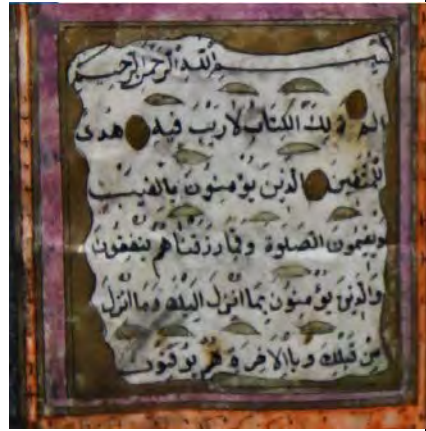 بسم الله الرحمن الرحيم
الم ذلك الكتاب لا ريب فيه هدى
للمتقين الذين يؤمنون بالغيب
ويقيمون الصلوة ومما رزقناهم ينفقون
والذين يؤمنون بما انزل اليك وما انزل
من قبلك وبالاخرة هم يوقنون